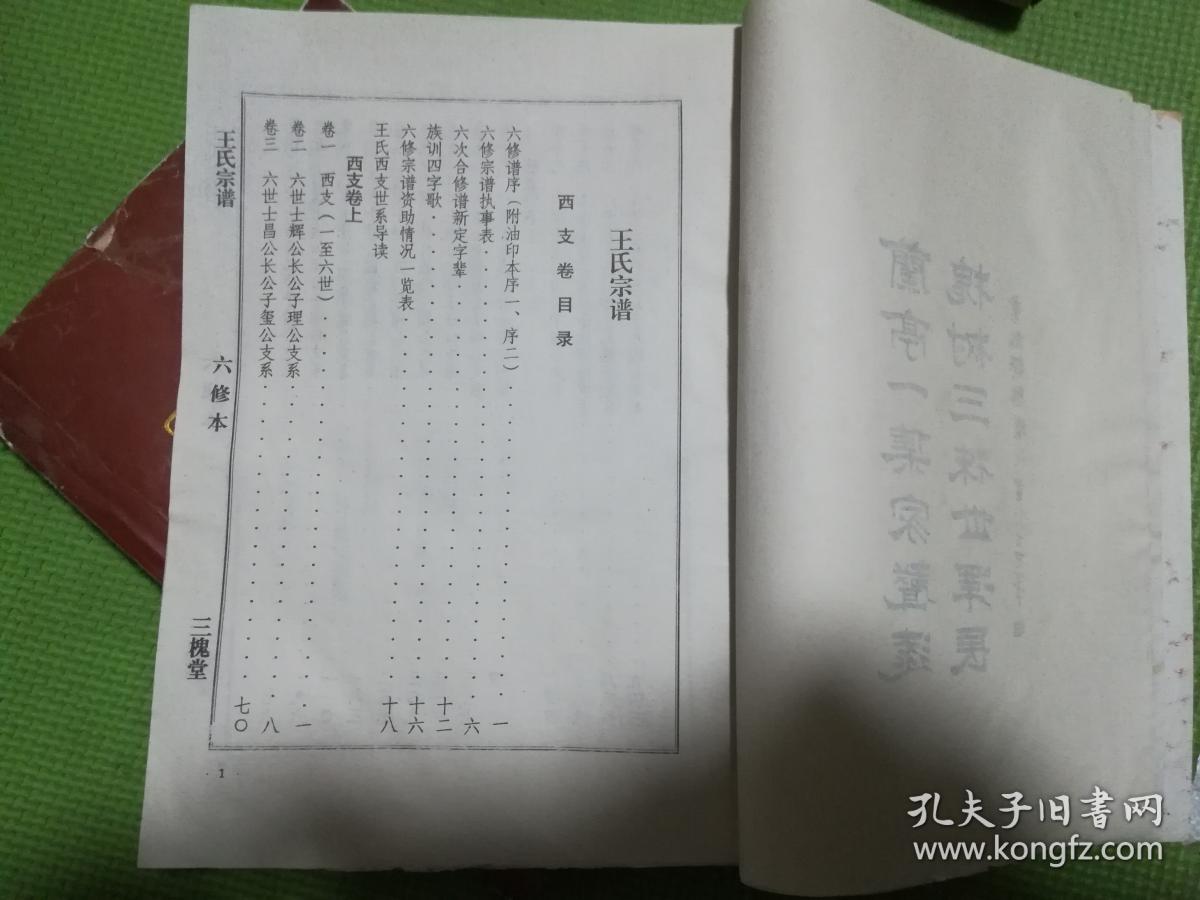 王氏宗谱
西支卷目录
六修谱序(附油印本序一、序二)……一
六修宗谱执事表……六
六次合修谱新定字辈……十二
族训四字歌……十六
六修宗谱资助情况一览表……十八
王氏西支世系导读
西支卷上
卷一 西支(一至六世)……一
卷二 六世士辉公长公子理公支系……八
卷三 六世士昌公长公子玺公支系……七〇
王氏宗谱 六修本 三槐堂
· 1 ·
孔夫子旧书网
www.kongfz.com